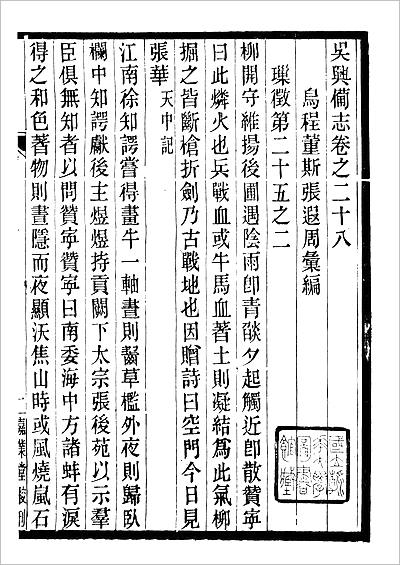 吳興備志卷之二十八
烏程董斯張遐周彙編
璅徵第二十五之二
柳開守維揚後圃遇陰雨卽青燄夕起觸近卽散贊寧
曰此燐火也兵戰血或牛馬血著土則凝結爲此氣柳
掘之皆斷槍折劍乃古戰地也因贈詩曰空門今日見
張華 天中記
江南徐知諤嘗得畫牛一軸晝則齧草欄外夜則歸臥
欄中知諤獻後主煜煜持貢闕下太宗張後苑以示羣
臣俱無知者以問贊寧贊寧曰南委海中方諸蚌有淚
得之和色著物則晝隱而夜顯沃焦山時或風燒嵐石
嘉業堂校刊